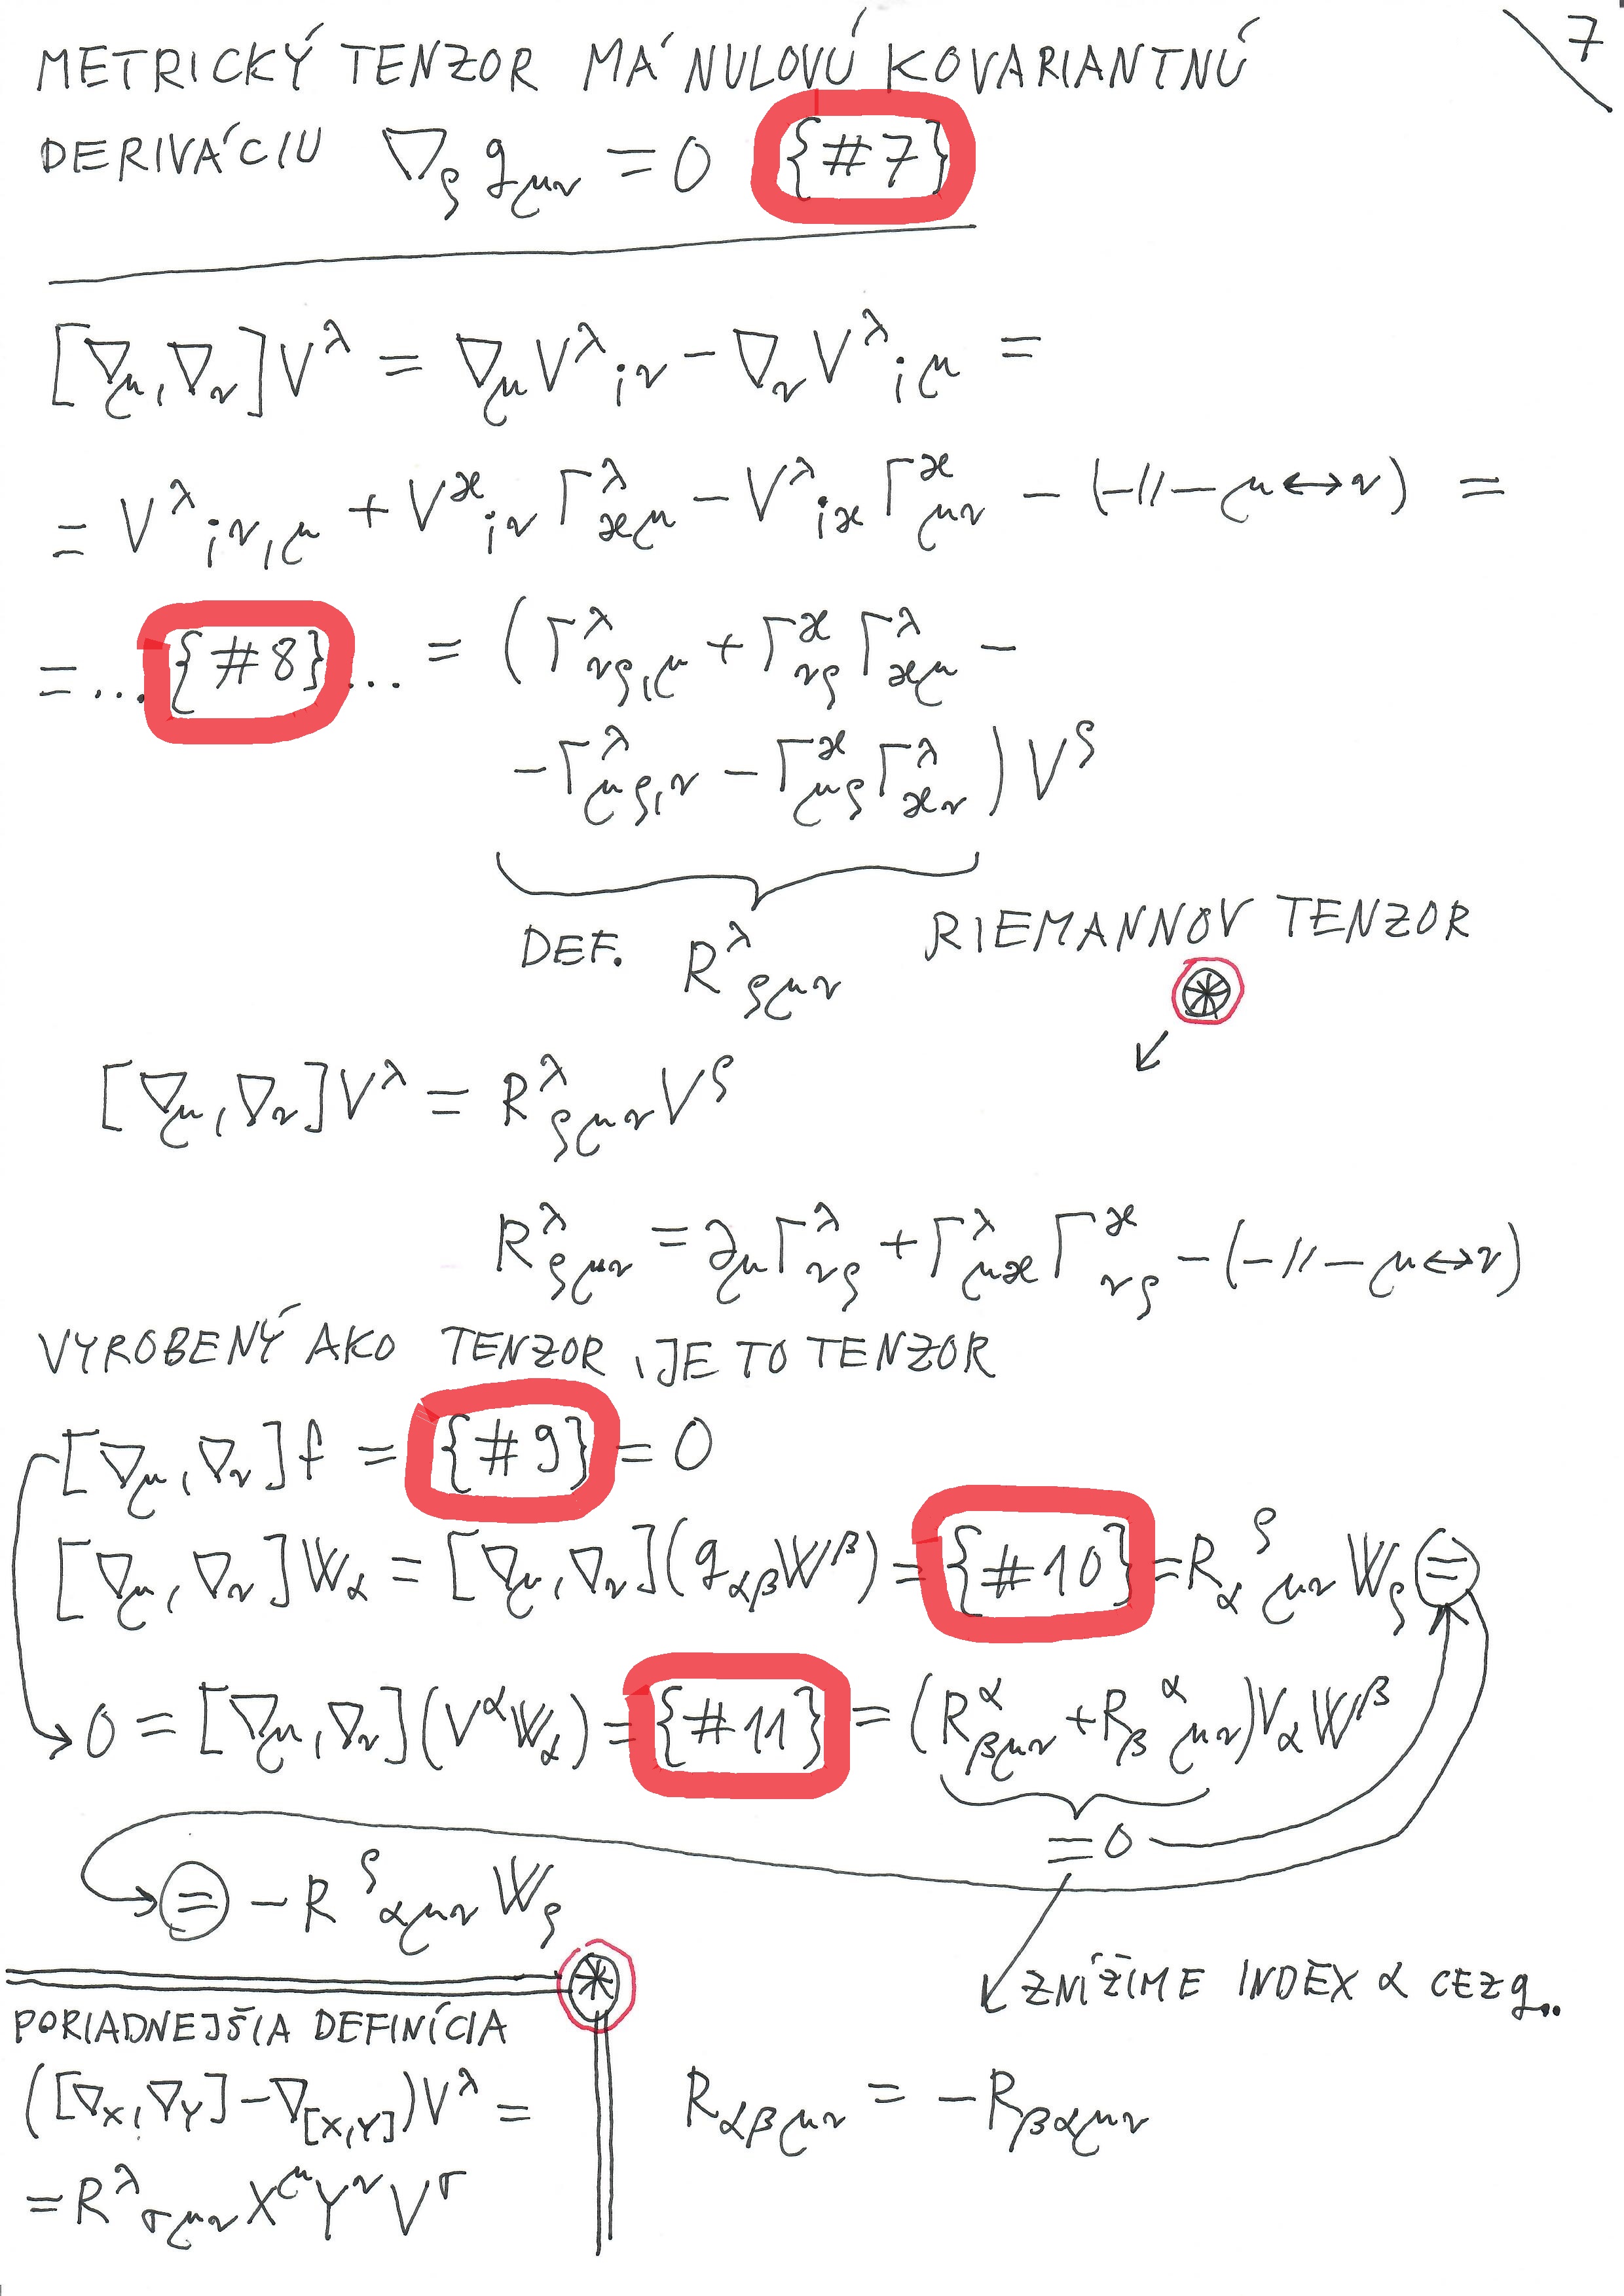 METRICKÝ TENZOR MÁ NULOVÚ KOVARIANTNÚ
7
DERIVÁCIU ∇_ρ g_μν = 0 {#7}
[∇_μ, ∇_ν]V^λ = ∇_μ V^λ_;ν − ∇_ν V^λ_;μ =
= V^λ_;ν,μ + V^ϰ_;ν Γ^λ_ϰμ − V^λ_;ϰ Γ^ϰ_μν − (−//− μ↔ν) =
= ... {#8} ... = (Γ^λ_νρ,μ + Γ^ϰ_νρ Γ^λ_ϰμ −
− Γ^λ_μρ,ν − Γ^ϰ_μρ Γ^λ_ϰν) V^ρ
DEF. R^λ_ρμν RIEMANNOV TENZOR
⊛
↙
[∇_μ, ∇_ν]V^λ = R^λ_ρμν V^ρ
R^λ_ρμν = ∂_μ Γ^λ_νρ + Γ^λ_μϰ Γ^ϰ_νρ − (−//− μ↔ν)
VYROBENÝ AKO TENZOR, JE TO TENZOR
[∇_μ, ∇_ν]f = {#9} = 0
[∇_μ, ∇_ν]W_α = [∇_μ, ∇_ν](g_αβ W^β) = {#10} = R_α^ρ_μν W_ρ =
0 = [∇_μ, ∇_ν](V^α W_α) = {#11} = (R^α_βμν + R_β^α_μν)V_α W^β
= 0
= − R^ρ_αμν W_ρ
ZNÍŽIME INDEX α CEZ g..
⊛
PORIADNEJŠIA DEFINÍCIA
([∇_X, ∇_Y] − ∇_[X,Y])V^λ =
= R^λ_σμν X^μ Y^ν V^σ
R_αβμν = − R_βαμν